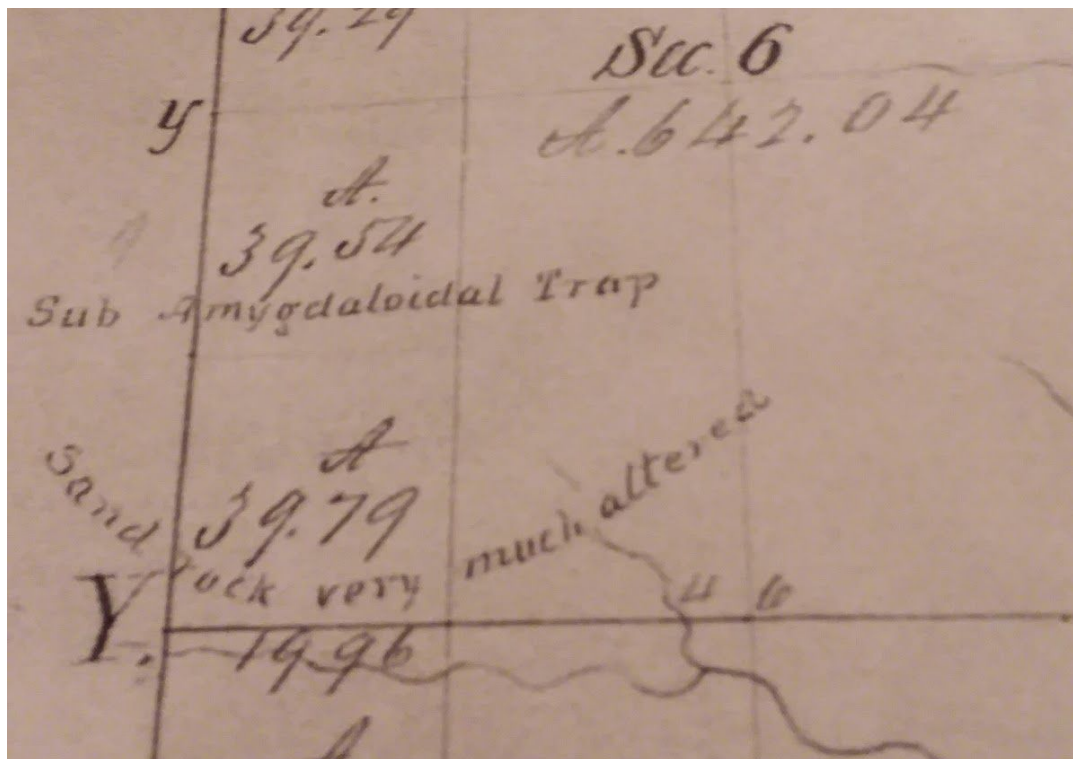 39.29
Sec. 6
y
A. 642.04
A.
39.54
Sub Amygdaloidal Trap
A
39.79
Sand rock very much altered
4 6
Y.
19.96
A